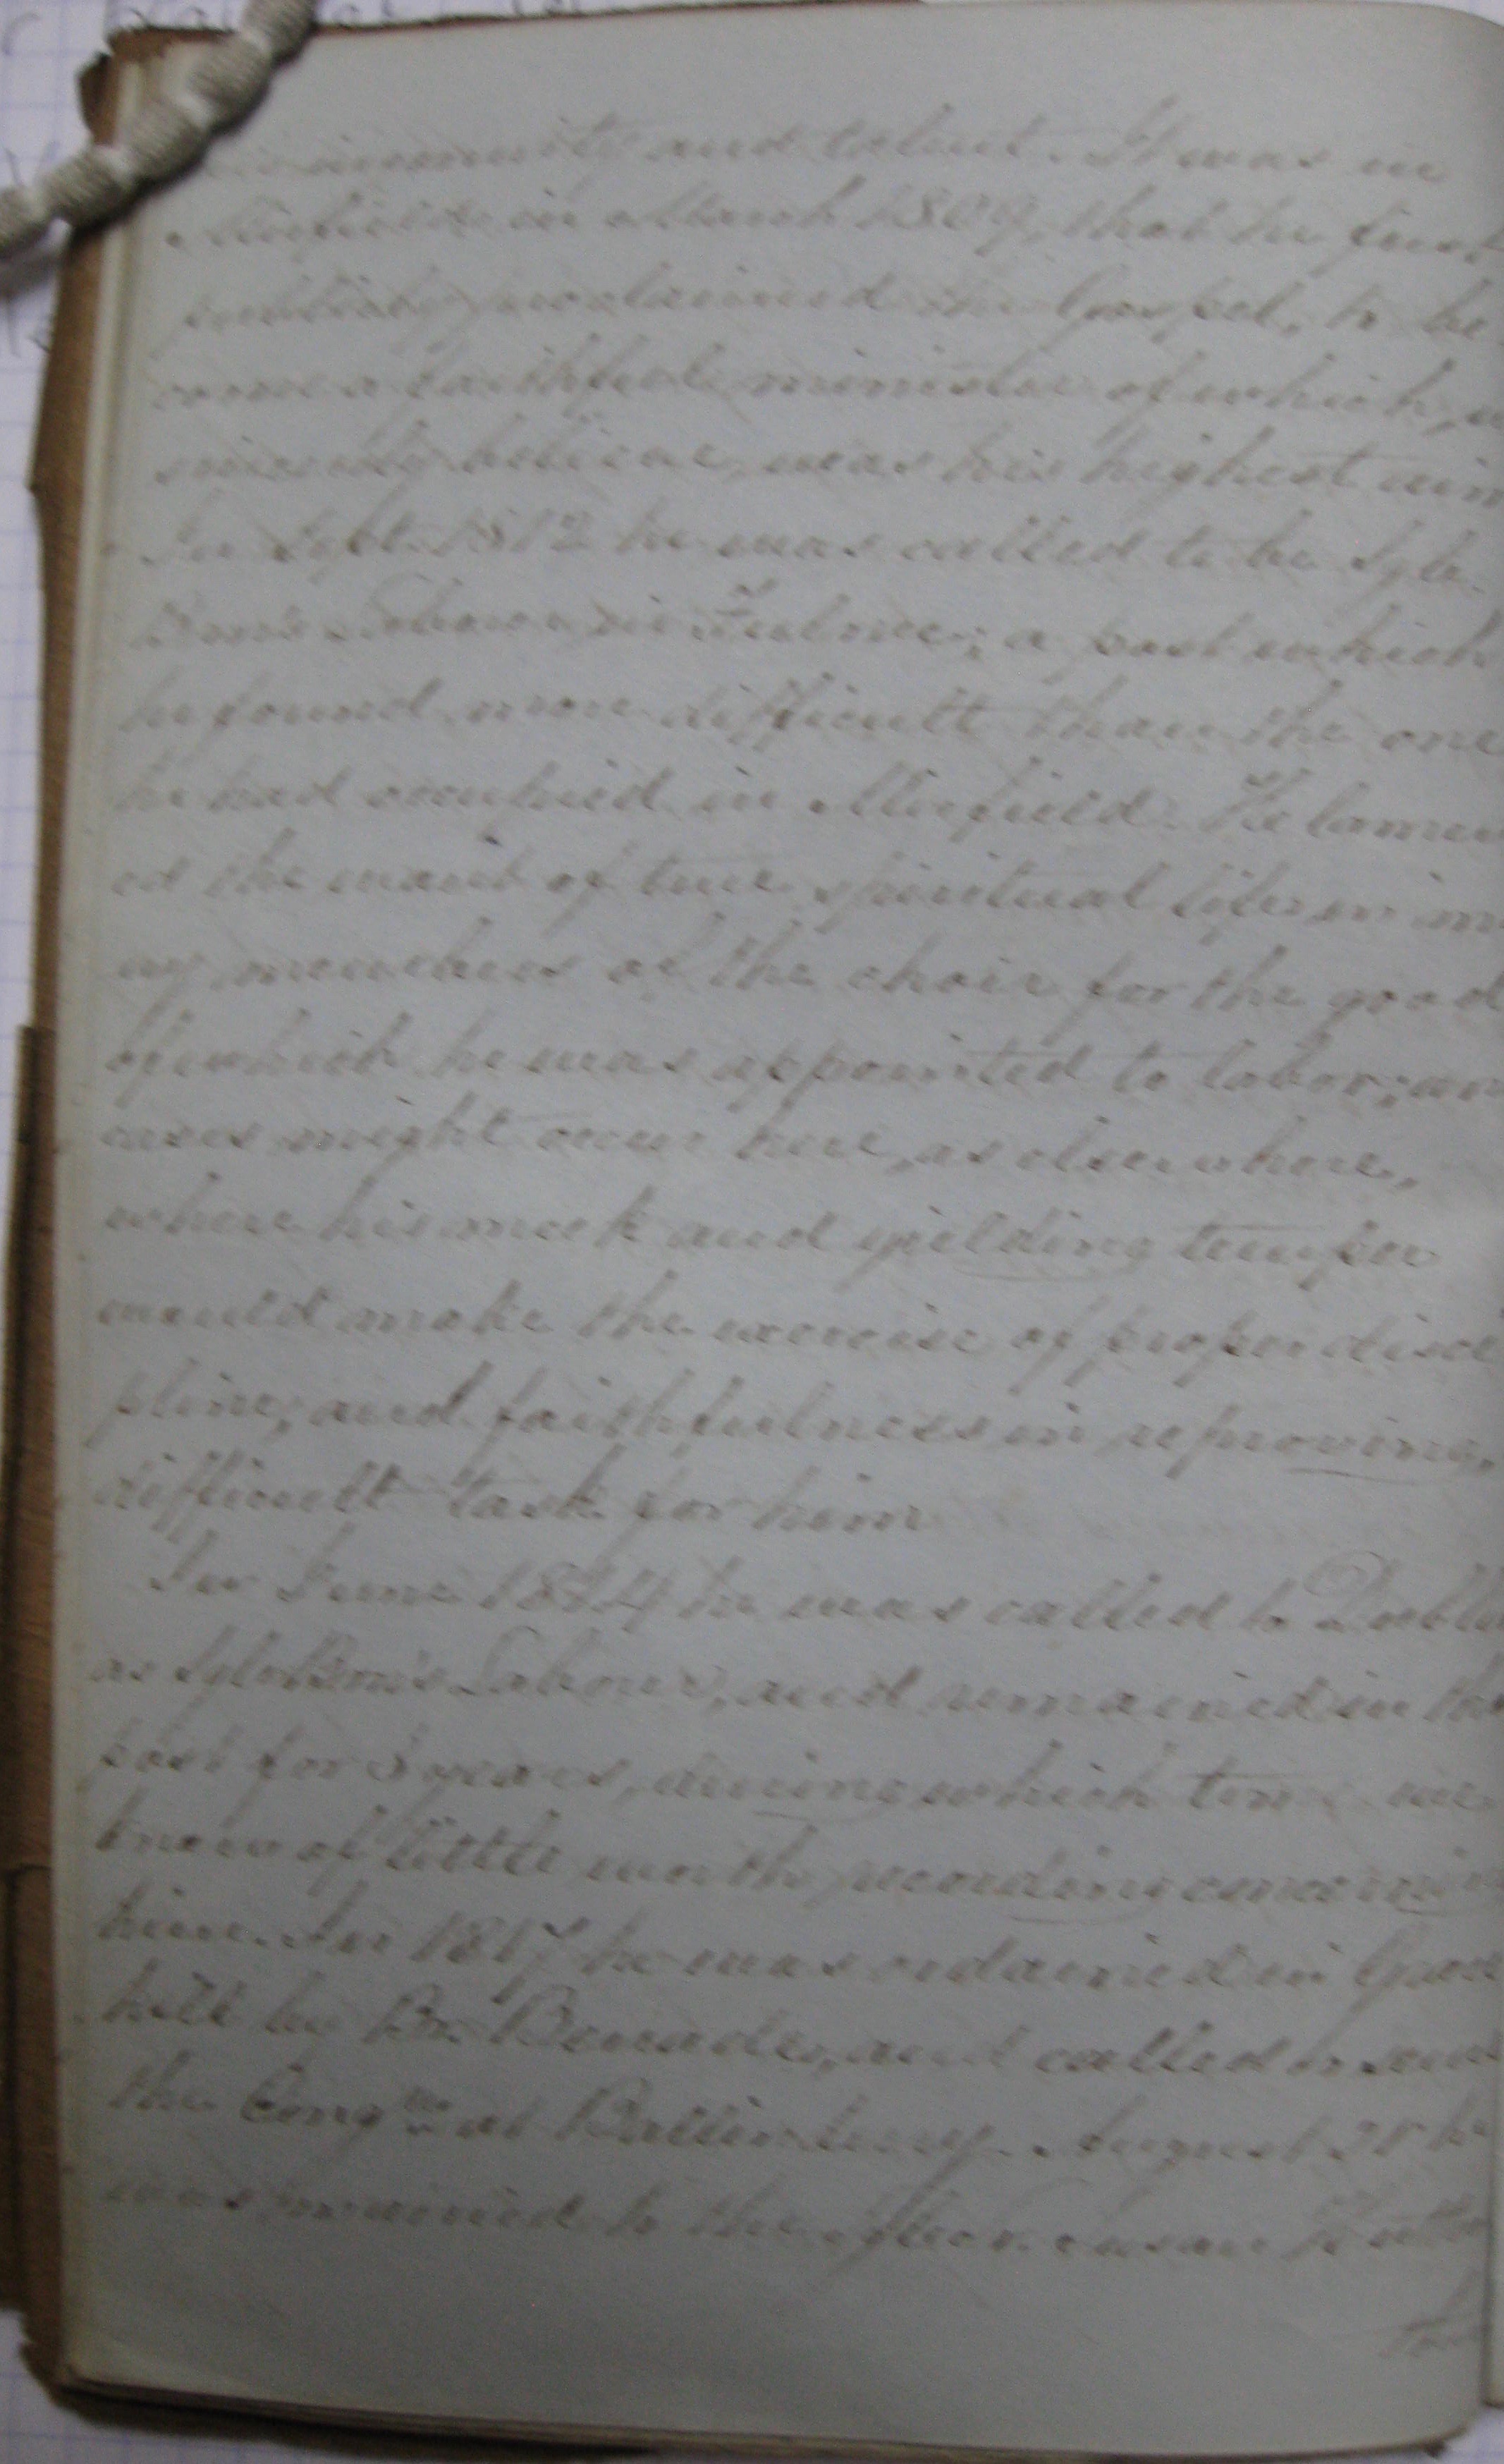 and talent. It was in
Mirfield in March 1809, that he first
publicly proclaimed the Gospel, to be
come a faithful minister of which, w
sincerely believe, was his highest aim
In Sept. 1812 he was called to be Sgle.
Brn's Labourer in Fulnec; a post which
he found more difficult than the one
he had occupied in Mirfield. He lamen
ed the want of true spiritual life in m
ny members of the choir for the good
of which he was appointed to labor; an
cases might occur here, as elsewhere,
where his meek and yielding temper
would make the exercise of proper disci
pline, and faithfulness in reproving,
difficult task for him
In June 1814 he was called to Dubli
as Sgle Brn's Labourer, and remained in tha
post for 3 years, during which time we
know of little worth recording concernin
him. In 1817 he was ordained in Grace
hill by Br. Benade, and called to serve
the Congn at Ballinderry. August 28 he
was married to the Sister Susan